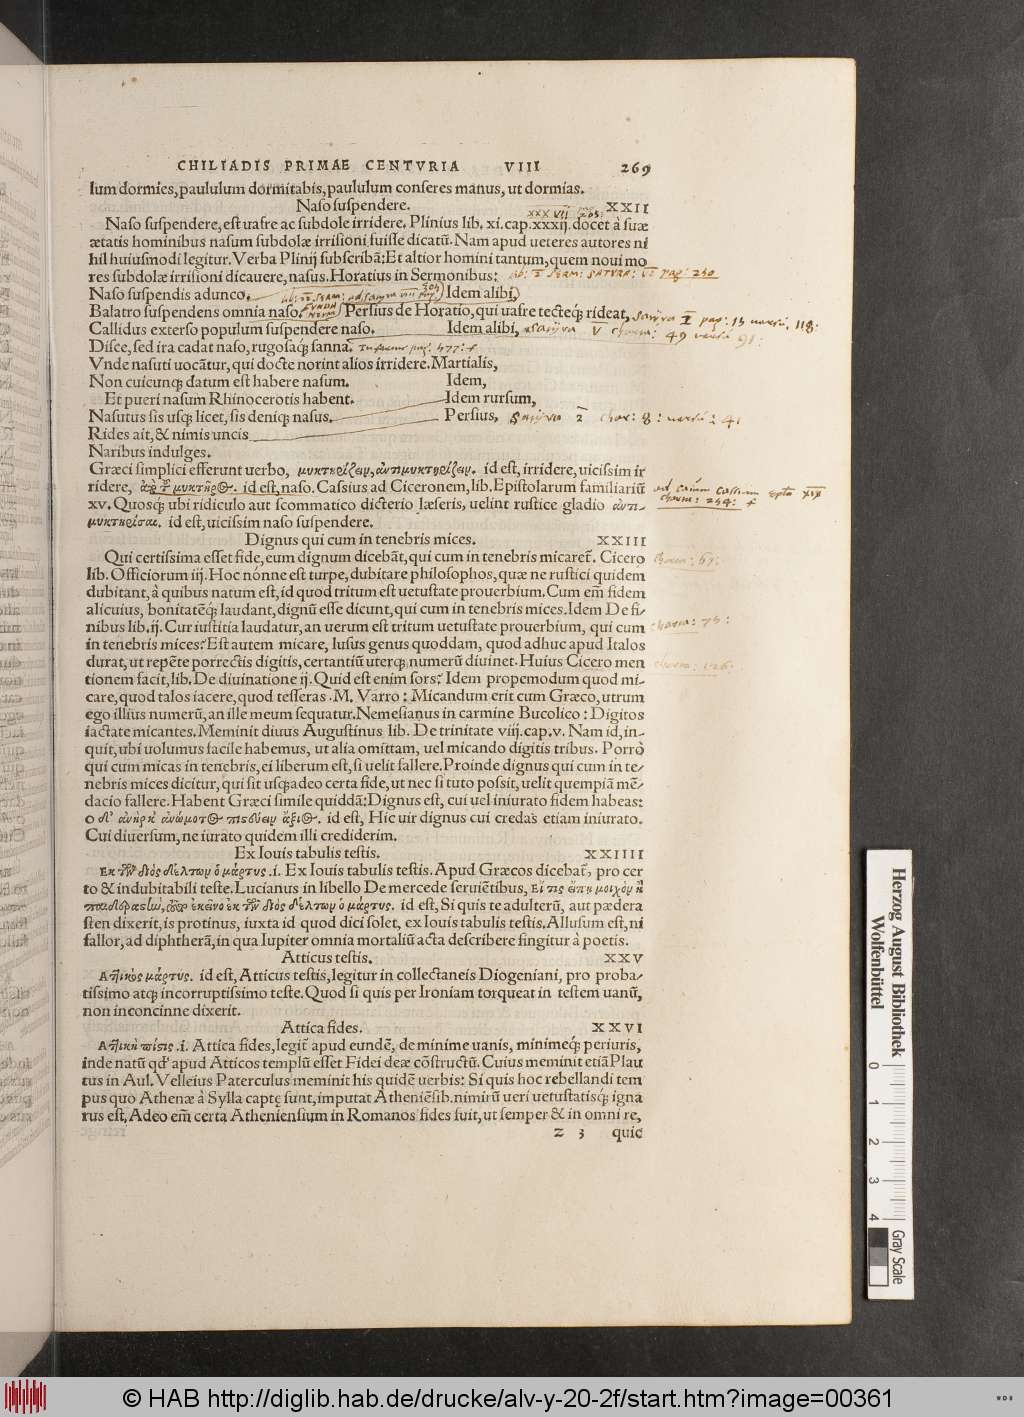 CHILIADIS PRIMAE CENTVRIA VIII 269
lum dormies, paululum dormitabis, paululum conseres manus, ut dormias.
Naso suspendere. XXII
Naso suspendere, est uafre ac subdole irridere. Plinius lib. xi. cap. xxxij. docet à suæ
ætatis hominibus nasum subdolæ irrisioni fuisse dicatũ. Nam apud ueteres autores ni
hil huiusmodi legitur. Verba Plinij subscribã: Et altior homini tantum, quem noui mo
res subdolæ irrisioni dicauere, nasus. Horatius in Sermonibus:
Naso suspendis adunco. Idem alibi,
Balatro suspendens omnia naso. Persius de Horatio, qui uafre tecteq́; rideat,
Callidus excusso populum suspendere naso. Idem alibi,
Disce, sed ira cadat naso, rugosaq́; sanna.
Vnde nasuti uocãtur, qui docte norint alios irridere. Martialis,
Non cuicunq; datum est habere nasum. Idem,
Et pueri nasum Rhinocerotis habent. Idem rursum,
Nasutus sis usq; licet, sis deniq; nasus. Persius,
Rides ait, & nimis uncis
Naribus indulges.
Græci simplici efferunt uerbo, μυκτηρίζειν, ἀντιμυκτηρίζειν. id est, irridere, uicissim ir
ridere, ἀπὸ τ μυκτῆρος. id est, naso. Cassius ad Ciceronem, lib. Epistolarum familiariũ
xv. Quosq́; ubi ridiculo aut scommatico dicterio læseris, uelint rustice gladio ἀντι-
μυκτηρίσαι. id est, uicissim naso suspendere.
Dignus qui cum in tenebris mices. XXIII
Qui certissima esset fide, eum dignum dicebãt, qui cum in tenebris micaret. Cicero
lib. Officiorum iij. Hoc nonne est turpe, dubitare philosophos, quæ ne rustici quidem
dubitant, à quibus natum est, id quod tritum est uetustate prouerbium. Cum em̃ fidem
alicuius, bonitatẽq́; laudant, dignũ esse dicunt, qui cum in tenebris mices. Idem De fi-
nibus lib. ij. Cur iustitia laudatur, an uerum est tritum uetustate prouerbium, qui cum
in tenebris mices? Est autem micare, lusus genus quoddam, quod adhuc apud Italos
durat, ut repẽte porrectis digitis, certantiũ uterq; numerũ diuinet. Huius Cicero men
tionem facit, lib. De diuinatione ij. Quid est enim sors? Idem propemodum quod mi-
care, quod talos iacere, quod tesseras. M. Varro: Micandum erit cum Græco, utrum
ego illius numerũ, an ille meum sequatur. Nemesianus in carmine Bucolico: Digitos
iactate micantes. Meminit diuus Augustinus lib. De trinitate viij. cap. v. Nam id, in-
quit, ubi uolumus facile habemus, ut alia omittam, uel micando digitis tribus. Porrò
qui cum micas in tenebris, ei liberum est, si uelit fallere. Proinde dignus qui cum in te-
nebris mices dicitur, qui sit usq;adeo certa fide, ut nec si tuto possit, uelit quempiã mẽ-
dacio fallere. Habent Græci simile quiddã: Dignus est, cui uel iniurato fidem habeas:
id est, Hic uir dignus cui credas etiam iniurato.
Cui diuersum, ne iurato quidem illi crediderim.
Ex Iouis tabulis testis. XXIIII
Εκ τῶν διὸς δέλτων ὁ μάρτυς. i. Ex Iouis tabulis testis. Apud Græcos dicebat̃, pro cer
to & indubitabili teste. Lucianus in libello De mercede seruiẽtibus, εἴ τις εἴπῃ μοιχὸν ἢ
ἐκεῖνο ἐκ τῶν διὸς δέλτων ὁ μάρτυς. id est, Si quis te adulterũ, aut pædera
sten dixerit, is protinus, iuxta id quod dici solet, ex Iouis tabulis testis. Allusum est, ni
fallor, ad diphtherã, in qua Iupiter omnia mortaliũ acta describere fingitur à poetis.
Atticus testis. XXV
Ἀττικὸς μάρτυς. id est, Atticus testis, legitur in collectaneis Diogeniani, pro proba-
tissimo atq; incorruptissimo teste. Quod si quis per Ironiam torqueat in testem uanũ,
non inconcinne dixerit.
Attica fides. XXVI
Ἀττικὴ πίστις. i. Attica fides, legit̃ apud eundẽ, de minime uanis, minimeq́; periuris,
inde natũ qd̓ apud Atticos templũ esset Fidei deæ cõstructũ. Cuius meminit etiã Plau
tus in Aul. Velleius Paterculus meminit his quidẽ uerbis: Si quis hoc rebellandi tem
pus quo Athenæ à Sylla captę sunt, imputat Atheniẽsib. nimirũ ueri uetustatisq́; igna
rus est, Adeo em̃ certa Atheniensium in Romanos fides fuit, ut semper & in omni re,
z 3 quic
Herzog August Bibliothek
Wolfenbüttel
0 1 2 3 4
Gray Scale
© HAB http://diglib.hab.de/drucke/alv-y-20-2f/start.htm?image=00361